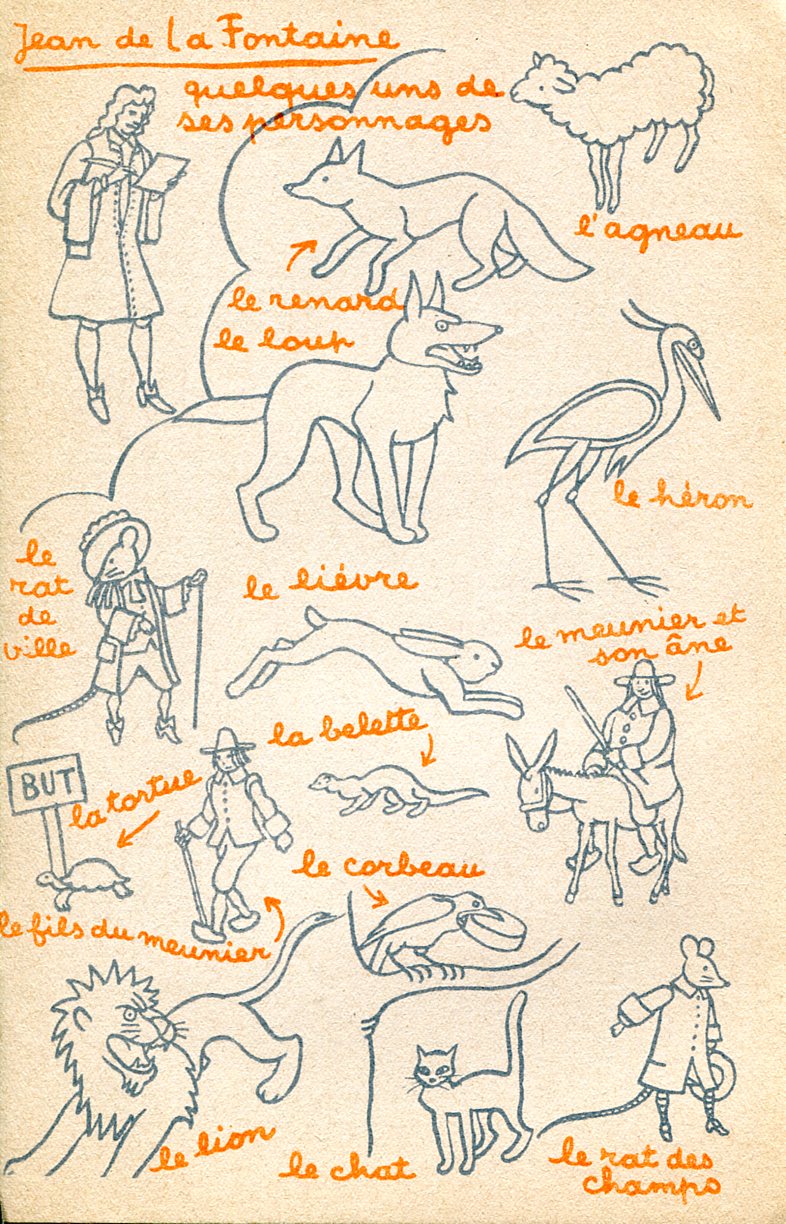 Jean de La Fontaine
quelques uns de
ses personnages
l'agneau
le renard
le loup
le héron
le
rat
de
ville
le liévre
le meunier et
son âne
la belette
BUT
la tortue
le corbeau
le fils du meunier
le lion
le chat
le rat des
champs